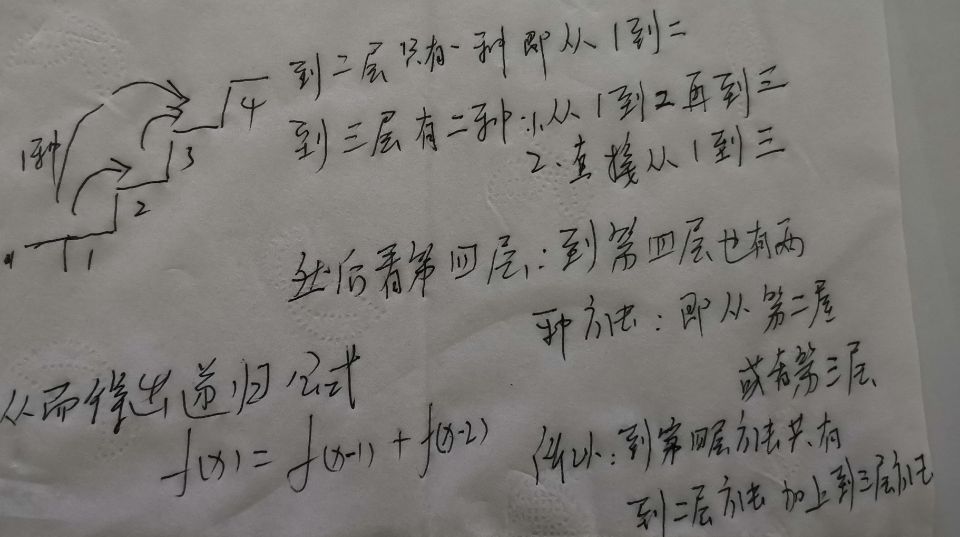 到二层只有一种即从1到二
到三层有二种:1.从1到2再到三
2.直接从1到三
1种
4
3
2
1
然后看第四层:到第四层也有两
种方法:即从第二层
或者第三层
所以:到第四层方法共有
到二层方法加上到三层方法
从而得出递归公式
f(x)=f(x-1)+f(x-2)